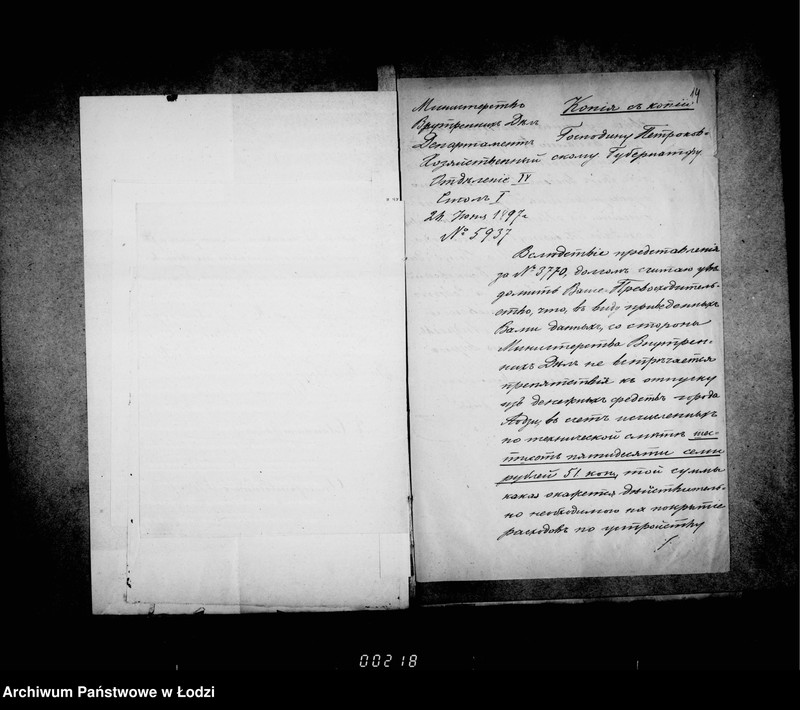 14
Копія съ копіи.
Министерство
Внутреннихъ Дѣлъ
Департаментъ
Хозяйственный
Отдѣленіе IV
Столъ I
24 Іюня 1897 г.
№ 5937
Господину Петроков-
скому Губернатору
Вслѣдствіе представленія
за № 3770, долгомъ считаю увѣ-
домить Ваше Превосходитель-
ство, что, въ виду приведенныхъ
Вами данныхъ, со стороны
Министерства Внутрен-
нихъ Дѣлъ не встрѣчается
препятствія къ отпуску
изъ денежныхъ средствъ города
Лодзи, въ счетъ исчисленныхъ
по технической смѣтѣ шес-
тисотъ пятидесяти семи
рублей 51 коп., той суммы
какая окажется дѣйствитель-
но необходимою на покрытіе
расходовъ по устройству
00218
Archiwum Państwowe w Łodzi